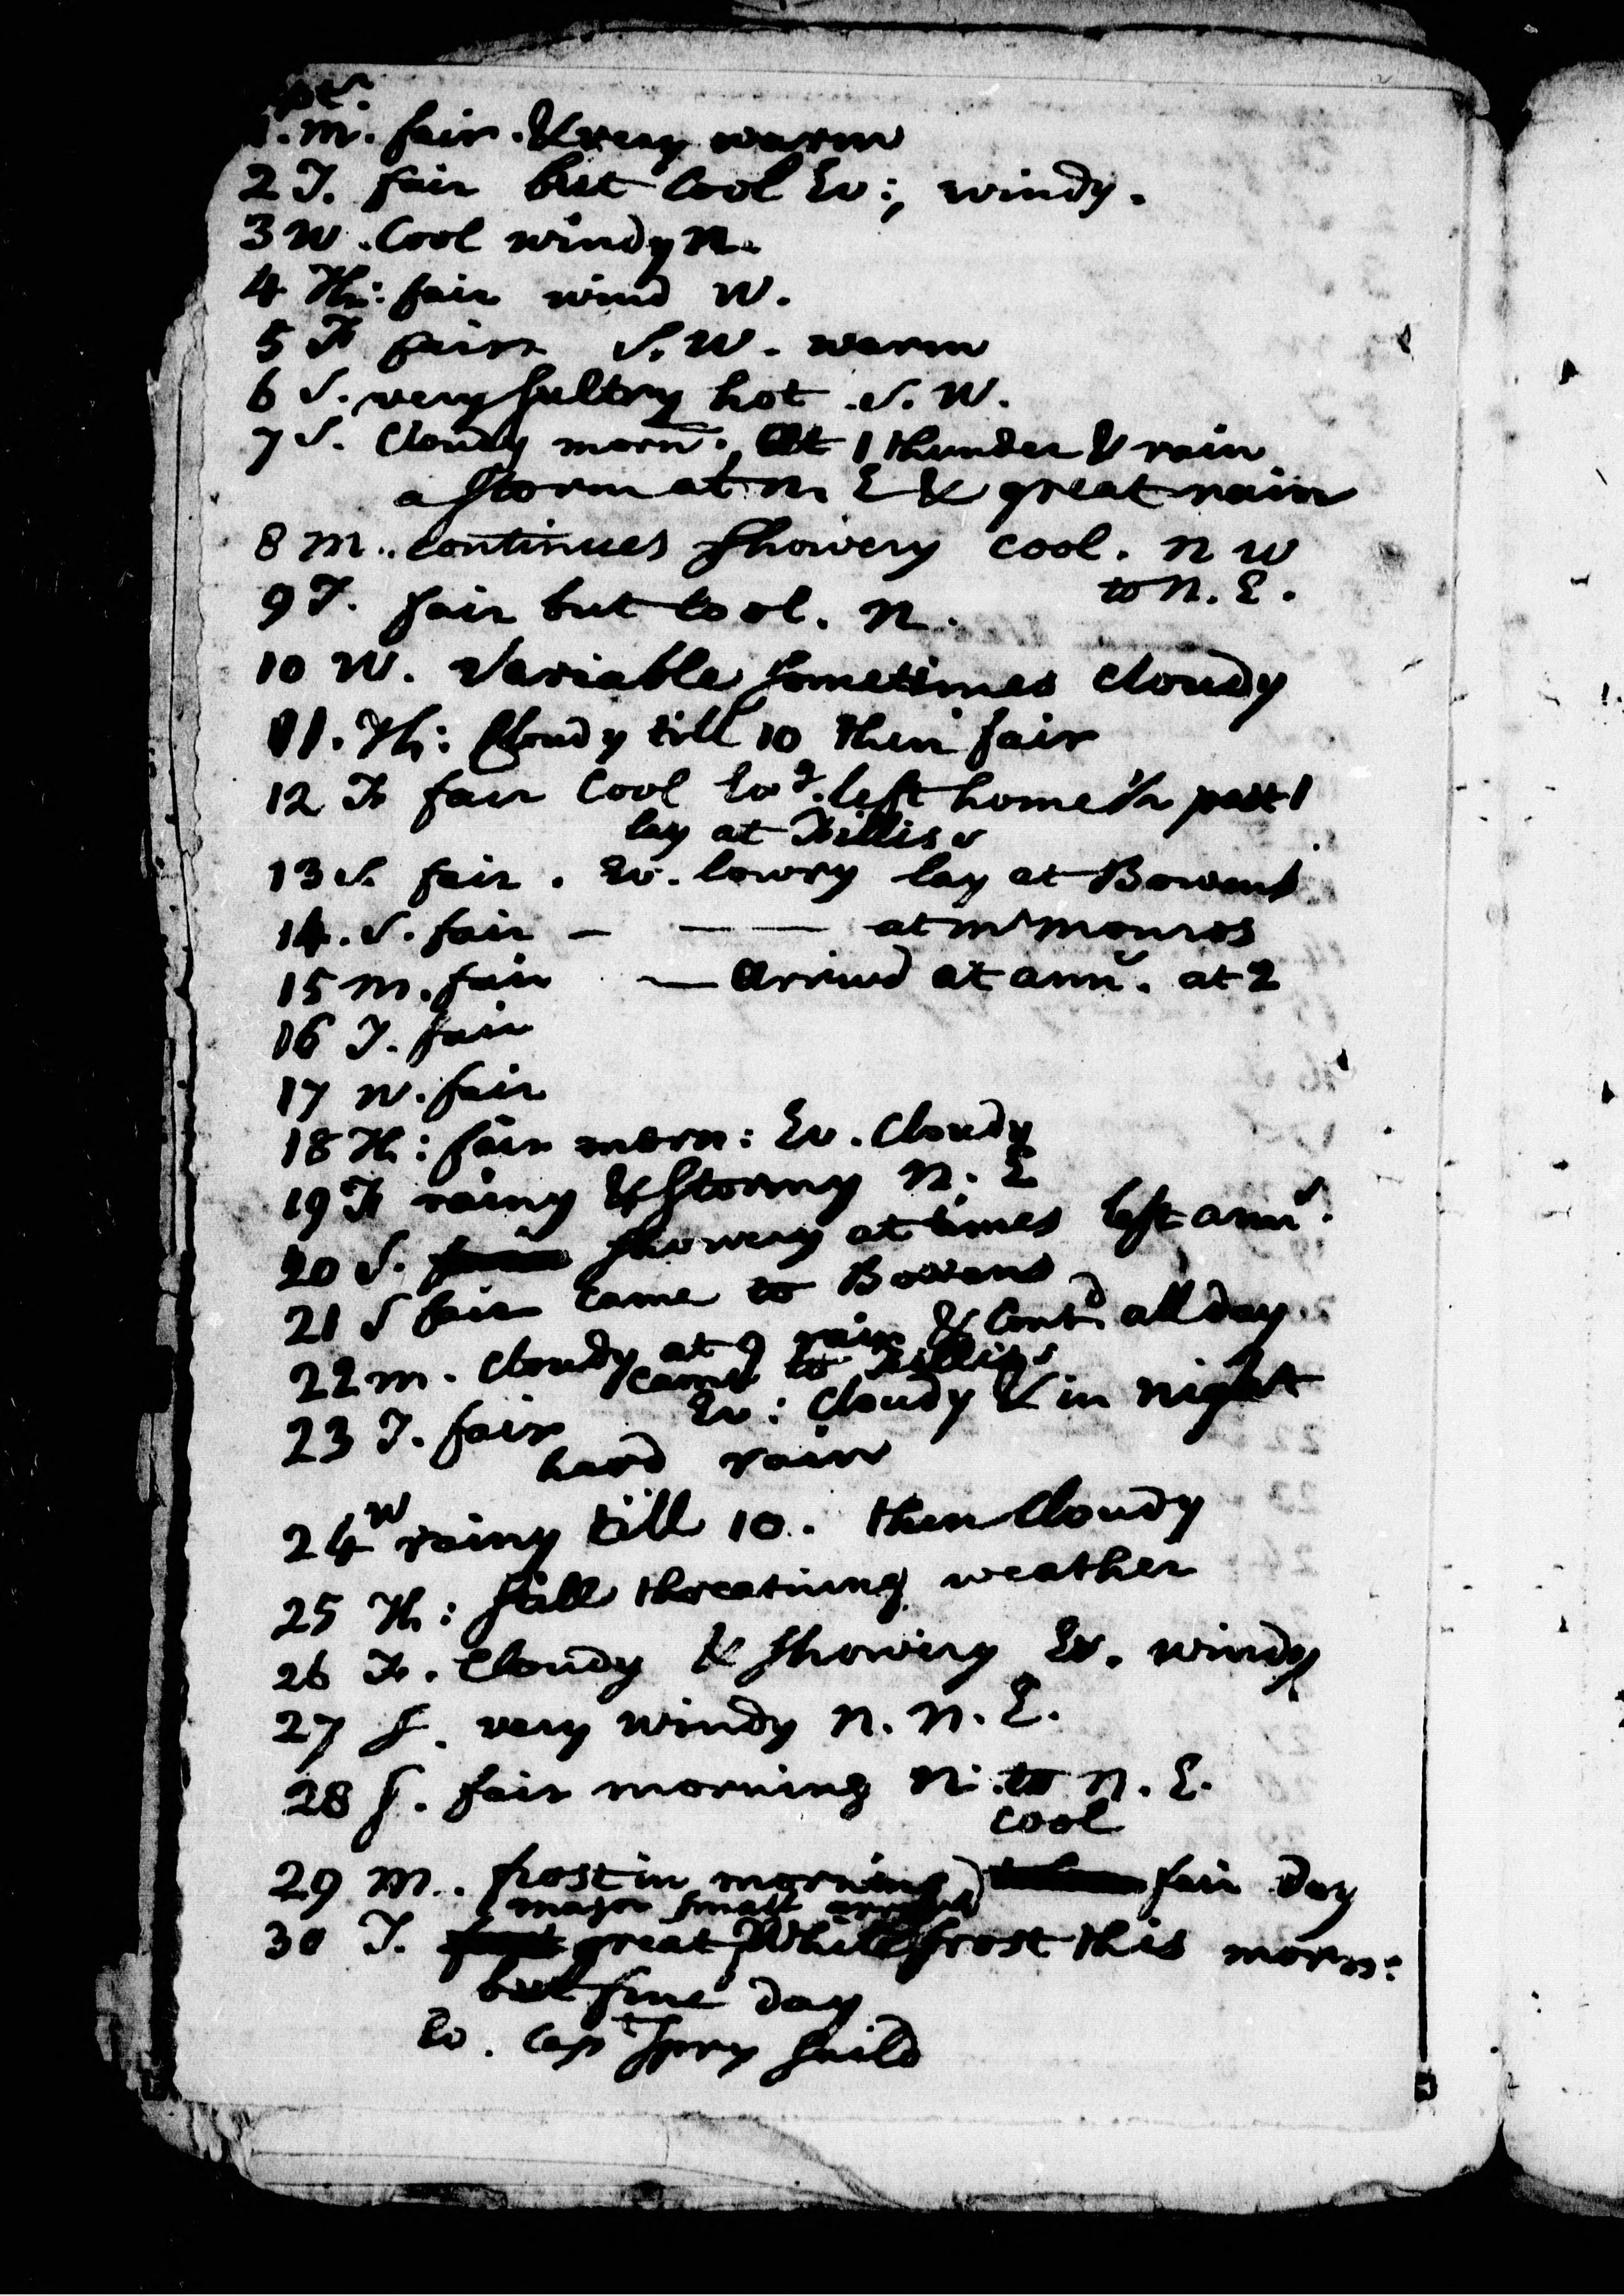 pt.
1. M. fair. & very warm
2 T. fair but Cool Ev:, windy.
3 W. Cool windy N.
4 Th: fair wind W.
5 F fair S.W. warm
6 S. very sultry hot S.W.
7 S. Cloudy morn. At 1 thunder & rain
a storm at N E & great rain
8 M. continues showery cool. N W
to N. E.
9 T. fair but Cool. N.
10 W. Variable sometimes cloudy
11. Th: Cloudy till 10 then fair
12 F fair Cool Evg. left home 1/2 past 1
lay at Hillis's
13 S. fair. Ev. lowry lay at Bowens
14. S. fair — — — at Mr Monros
15 M. fair — Arrivd at Anns. at 2
16 T. fair
17 W. fair
18 Th: fair morn: Ev. Cloudy
19 F rainy & stormy N. E
20 S. showery at times left Anns.
21 S fair came to Bowens
22 M. Cloudy at 9 rain & Contd all day
came to Hillis's
23 T. fair Ev: Cloudy & in night
hard rain
24 W rainy till 10. then Cloudy
25 Th: still threatning weather
26 F. Cloudy & showery Ev. windy
27 S. very windy N. N. E.
28 S. fair morning N. to N. E.
cool
29 M. frost in morning fair day
Major Small arrived
30 T. great White frost this morn:
but fine day
Ev. Capt Spry saild